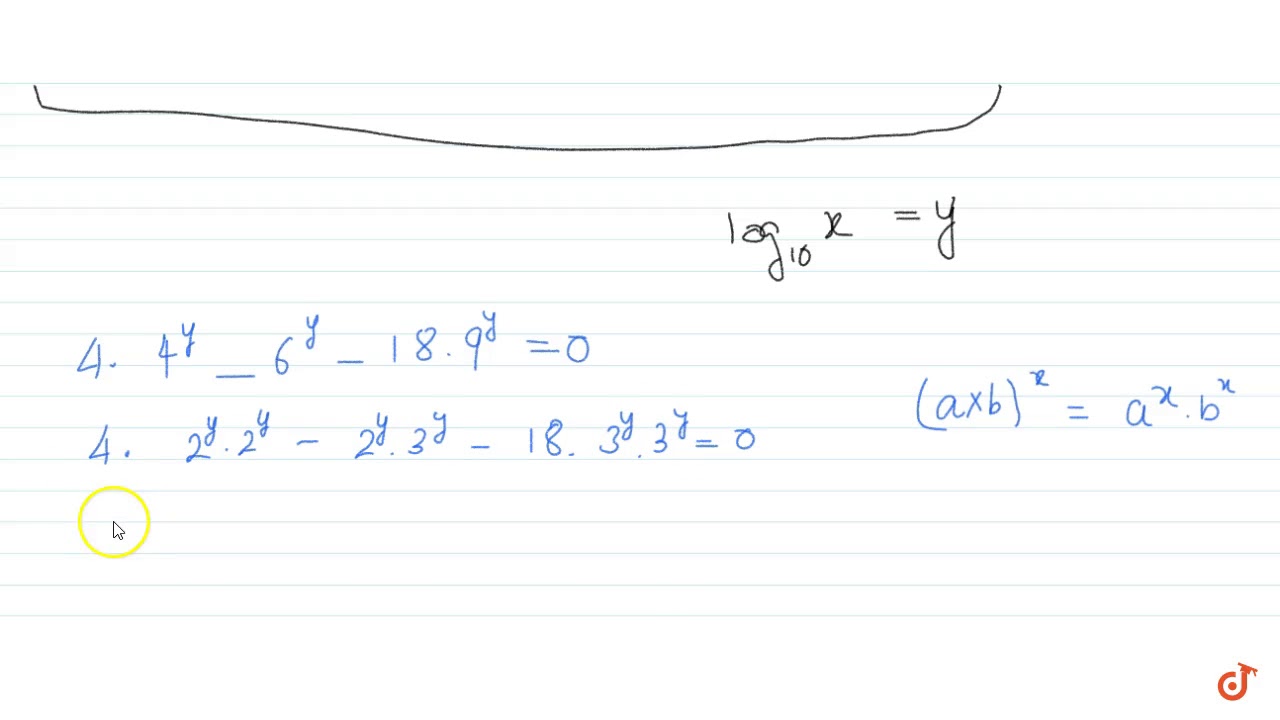 log₁₀ x = y
4. 4^y - 6^y - 18. 9^y = 0
(a×b)^x = a^x . b^x
4. 2^y . 2^y - 2^y . 3^y - 18. 3^y . 3^y = 0